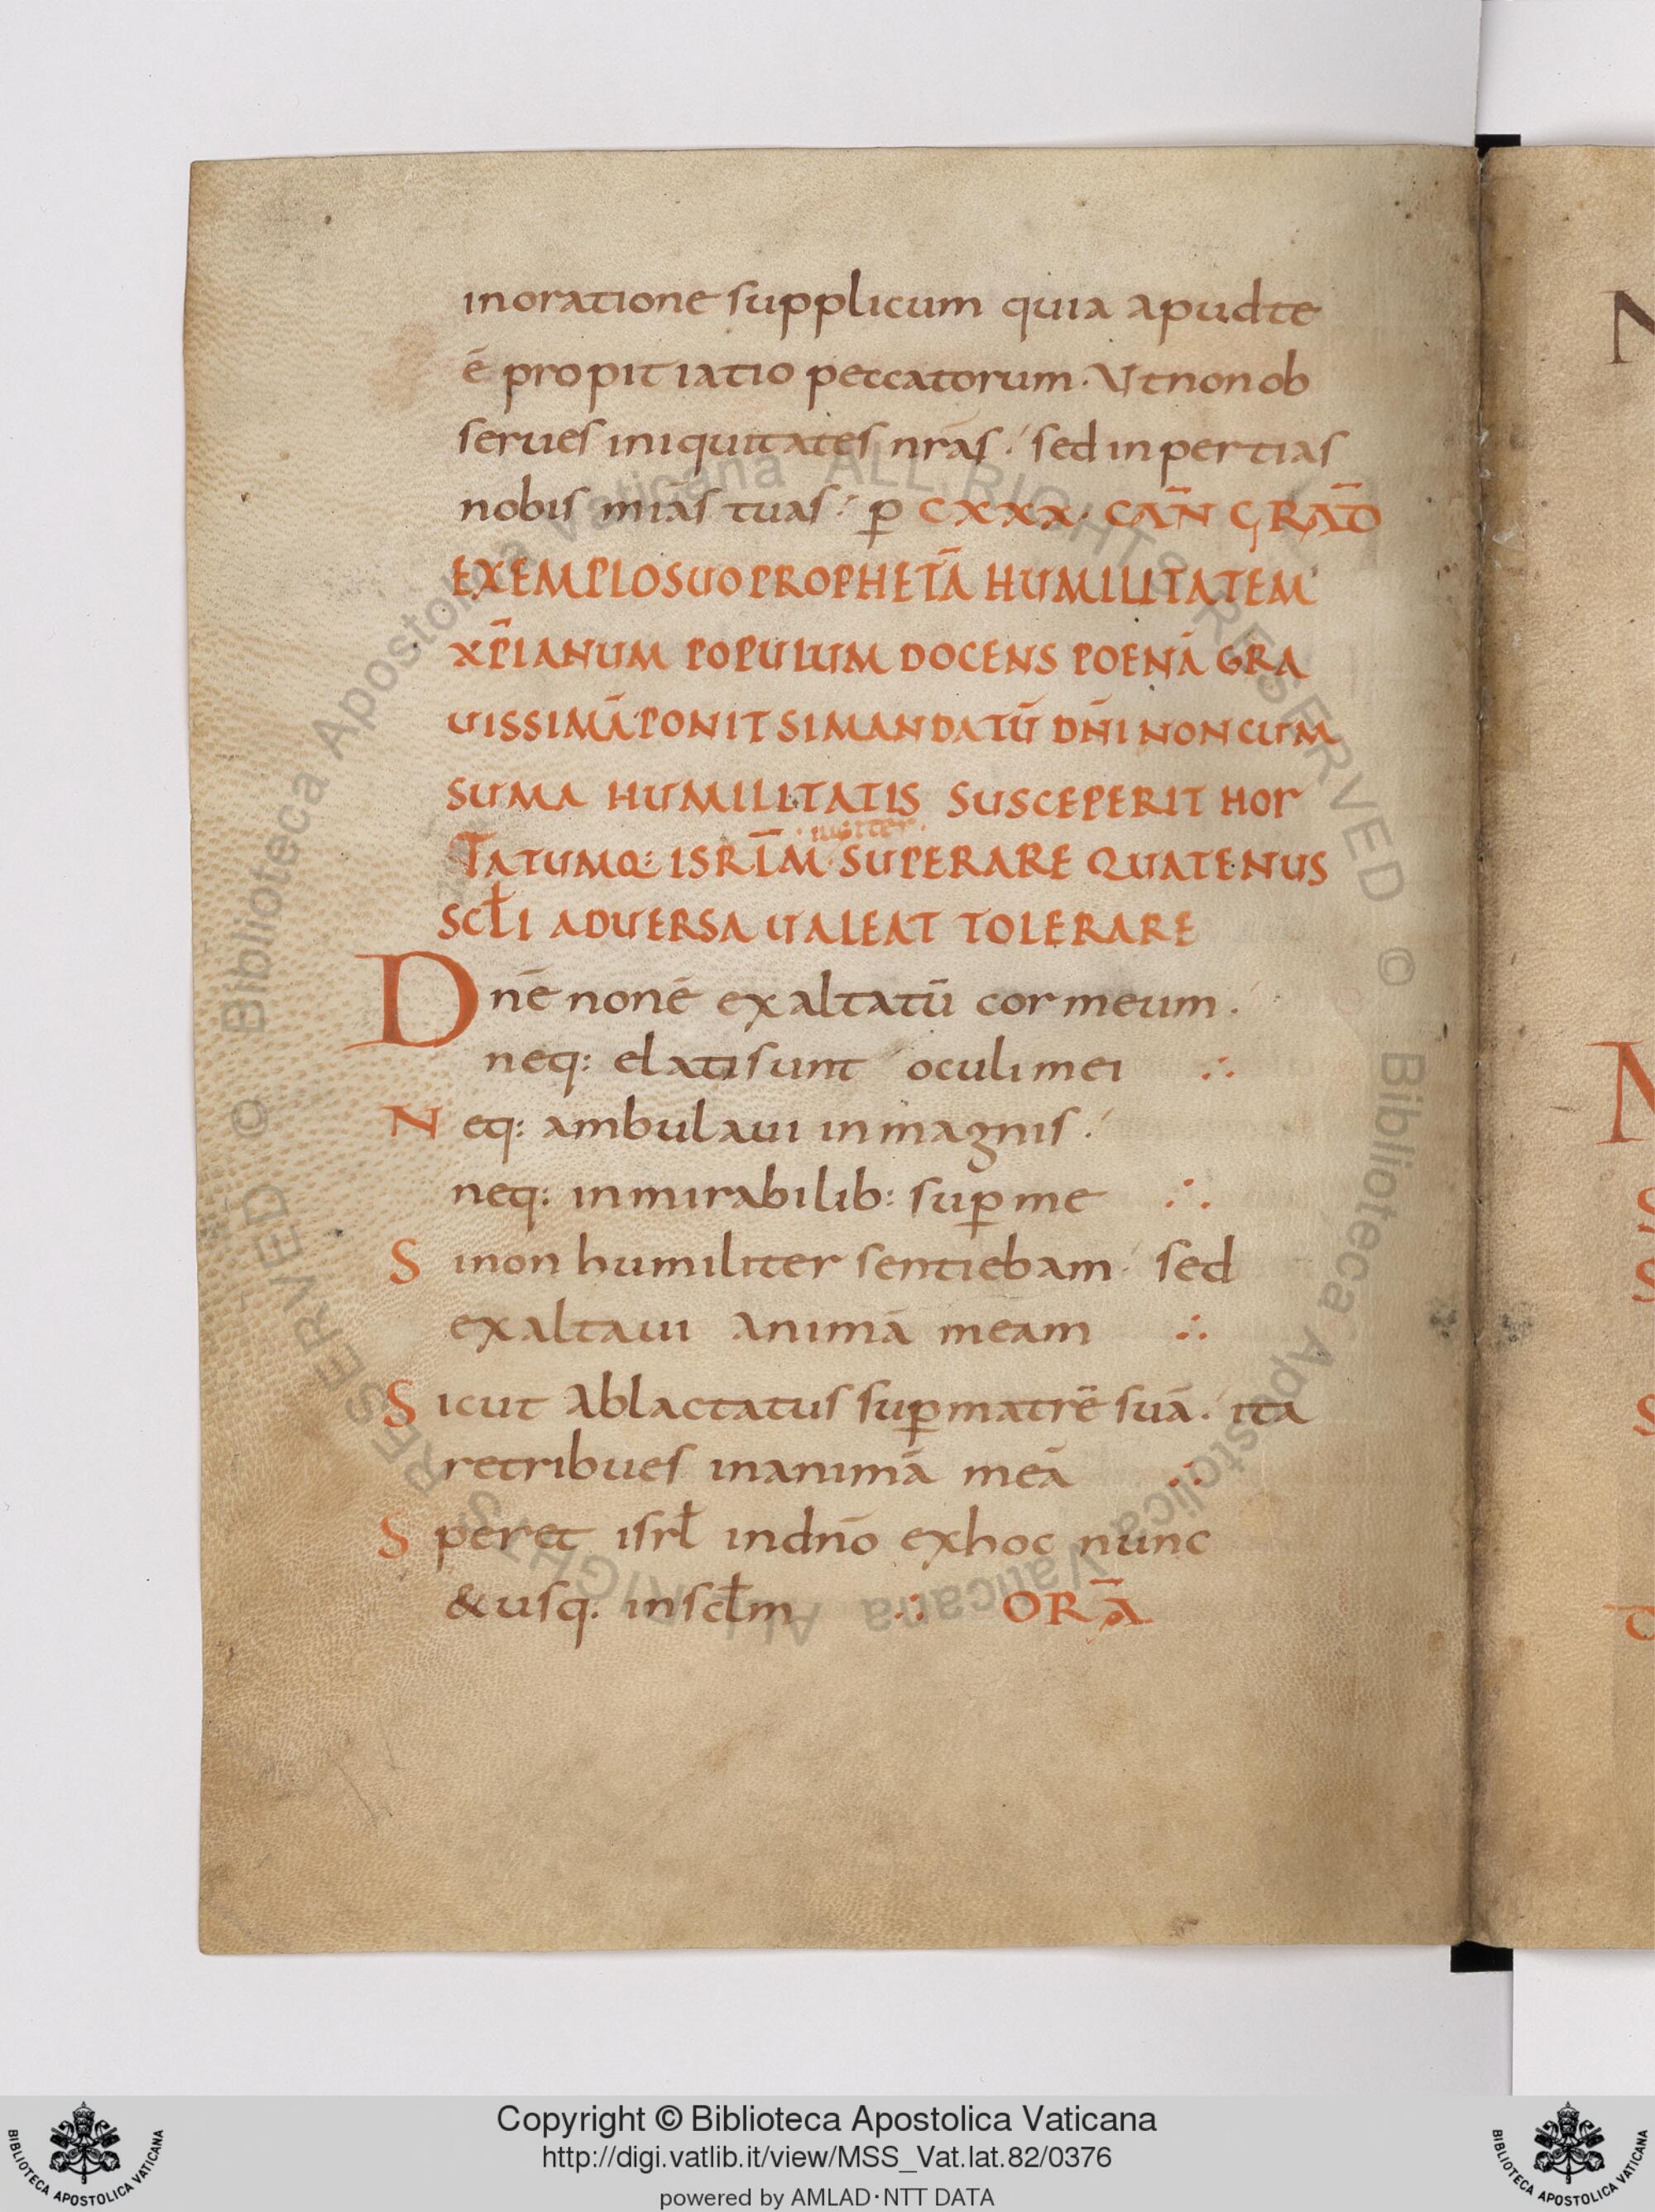 inoratione supplicum quia apudte
ē propitiatio peccatorum. Vtnonob
serues iniquitates nr̄as. sed inpertias
nobis mīas tuas. ꝑ CXXX. CAN̄ GRAD̄
EXEMPLOSUOPROPHETĀ HUMILITATEM
XP̄IANUM POPULUM DOCENS POENĀ GRA
UISSIMĀ PONIT SIMANDATŪ DN̄I NONCUM
SUMA HUMILITATIS SUSCEPERIT HOR
·iusiter·
TATUMQ: ISRĪM·SUPERARE QUATENUS
SCŁI ADUERSA UALEAT TOLERARE
Dnē nonē exaltatū cor meum.
neq: elatisunt oculi mei ∴
Neq: ambulaui inmagnis.
neq: inmirabilib: suꝑme ∴
Sinon humiliter sentiebam sed
exaltaui animā meam ∴
Sicut ablactatus suꝑmatrē suā. ita
retribues inanimā meā ∴
Speret isrł indn̄o exhoc nunc
&usq: inscłm ∴ ORĀ
Copyright © Biblioteca Apostolica Vaticana
http://digi.vatlib.it/view/MSS_Vat.lat.82/0376
powered by AMLAD·NTT DATA
BIBLIOTECA APOSTOLICA VATICANA
BIBLIOTECA APOSTOLICA VATICANA
© Biblioteca Apostolica Vaticana ALL RIGHTS RESERVED
© Biblioteca Apostolica Vaticana ALL RIGHTS RESERVED